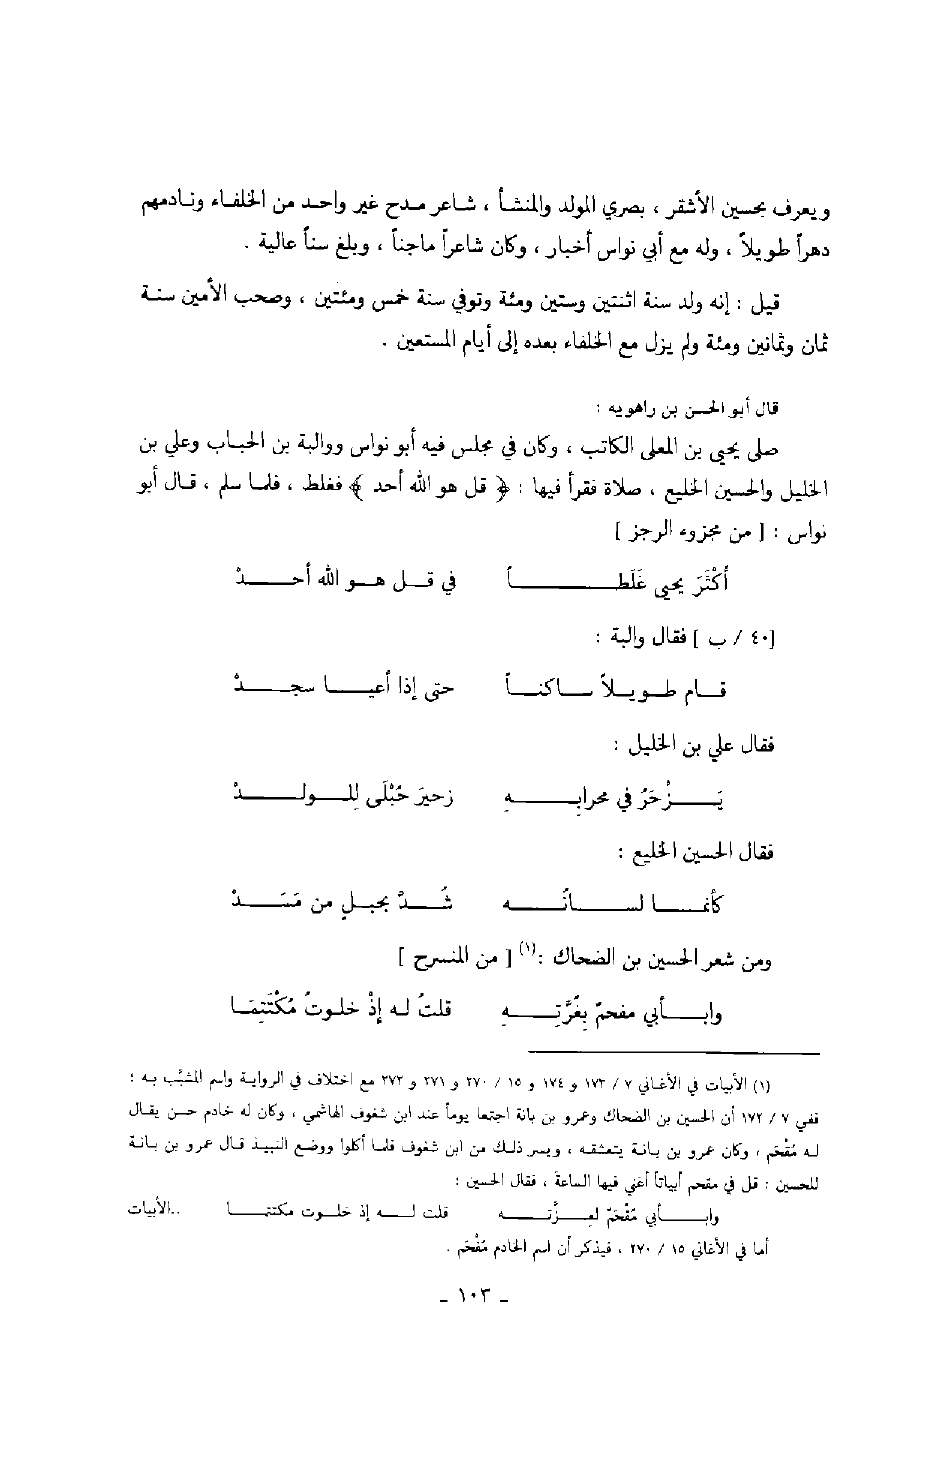 ويعرف بحسين الأشقر ، بصري المولد والمنشأ ، شاعر مدح غير واحد من الخلفاء ونادمهم
دهراً طويلاً ، وله مع أبي نواس أخبار ، وكان شاعراً ماجناً ، وبلغ سناً عالية .
قيل : إنه ولد سنة اثنتين وستين ومئة وتوفي سنة خمس ومئتين ، وصحب الأمين سنة
ثمان وثمانين ومئة ولم يزل مع الخلفاء بعده إلى أيام المستعين .
قال أبو الحسن بن راهويه :
صلى يحيى بن المعلى الكاتب ، وكان في مجلس فيه أبو نواس ووالبة بن الحباب وعلي بن
الخليل والحسين الخليع ، صلاة فقرأ فيها : ﴿ قل هو الله أحد ﴾ فغلط ، فلما سلم ، قال أبو
نواس : [ من مجزوء الرجز ]
أَكْثَرَ يحيى غَلَطاً في قل هو الله أحدْ
[٤٠ / ب ] فقال والبة :
قام طويلاً ساكناً حتى إذا أعيا سجدْ
فقال علي بن الخليل :
يَزْحَرُ في محرابِهِ زحيرَ حُبْلَى لِلولدْ
فقال الحسين الخليع :
كأنما لسانُه شُدَّ بحبلٍ من مَسَدْ
ومن شعر الحسين بن الضحاك :(١) [ من المنسرح ]
وابأبي مفحمٌ بِغُرَّتِهِ قلتُ له إذْ خلوتُ مُكْتَتِمَا
(١) الأبيات في الأغاني ٧ / ١٧٣ و ١٧٤ و ١٥ / ٢٧٠ و ٢٧١ و ٢٧٢ مع اختلاف في الرواية واسم المشبَّب به ؛
ففي ٧ / ١٧٢ أن الحسين بن الضحاك وعمرو بن بانة اجتمعا يوماً عند ابن شغوف الهاشمي ، وكان له خادم حسن يقال
له مُفْحَم ، وكان عمرو بن بانة يتعشقه ، ويسر ذلك من ابن شغوف فلما أكلوا ووضع النبيذ قال عمرو بن بانة
للحسين : قل في مفحم أبياتاً أغني فيها الساعة ، فقال الحسين :
وابأبي مُفْحَمٌ لعِزَّته قلت له إذ خلوت مكتتما ..الأبيات
أما في الأغاني ١٥ / ٢٧٠ ، فيذكر أن اسم الخادم مُقْحَم .
- ١٠٣ -